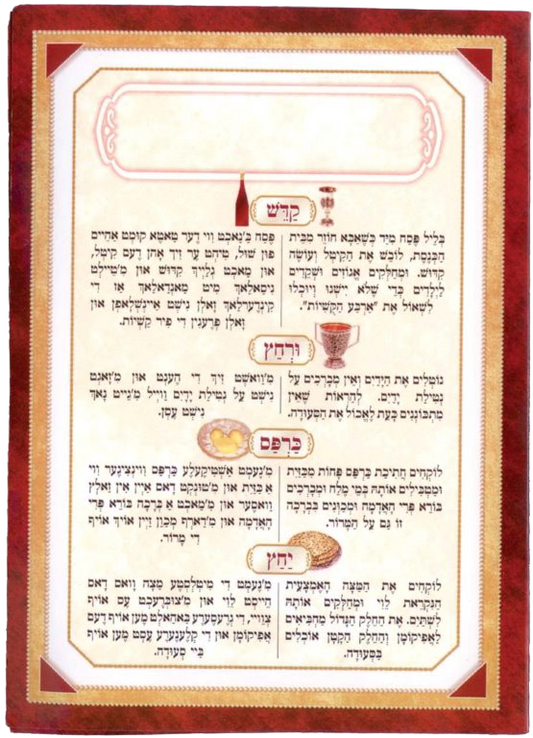 קַדֵּשׁ
בְּלֵיל פֶּסַח מִיָּד כְּשֶׁאַבָּא חוֹזֵר מִבֵּית
הַכְּנֶסֶת, לוֹבֵשׁ אֶת הַקִּיטְל וְעוֹשֶׂה
קִדּוּשׁ. וּמְחַלְּקִים אֱגוֹזִים וּשְׁקֵדִים
לַיְלָדִים כְּדֵי שֶׁלֹּא יִישְׁנוּ וְיוּכְלוּ
לִשְׁאוֹל אֶת "אַרְבַּע הַקֻּשְׁיוֹת".
פֶּסַח בַּ'נַאכְט וִוי דֶער טַאטֶא קוּמְט אַהֵיים
פוּן שׁוּל, טִיהְט עֶר זִיךְ אָהן דֶעם קִיטְל,
און מַאכְט גְלַיְיךְ קִדּוּשׁ און מ'טֵיילְט
נִיסַאלַאךְ מִיט מַאנְדַאלַאךְ אַז דִי
קִינְדֶערְלַאךְ זָאלְן נִישְׁט אַיינְשְׁלָאפְן און
זָאלְן פְרֶעגְין דִי פִיר קַשְׁיוֹת.
וּרְחַץ
נוֹטְלִים אֶת הַיָּדַיִם וְאֵין מְבָרְכִים עַל
נְטִילַת יָדַיִם. לְהַרְאוֹת שֶׁאֵין
מִתְכּוֹנְנִים כָּעֵת לֶאֱכוֹל אֶת הַסְּעוּדָה.
מ'וַואשְׁט זִיךְ דִי הֶענְט און מ'זָאגְט
נִישְׁט עַל נְטִילַת יָדַיִם וַוייל מ'גֵייט נָאךְ
נִישְׁט עֶסְן.
כַּרְפַּס
לוֹקְחִים חֲתִיכַת כַּרְפַּס פָּחוֹת מִכְּזַיִת
וּמַטְבִּילִים אוֹתָהּ בְּמֵי מֶלַח וּמְבָרְכִים
בּוֹרֵא פְּרִי הָאֲדָמָה וּמְכַוְּנִים בַּבְּרָכָה
זוֹ גַּם עַל הַמָּרוֹר.
מ'נֶעמְט אַשְׁטִיקֶעלֶע כַּרְפַּס וִוינְצִיגֶער וִוי
אַ כְּזַיִת און מ'טוּנְקְט דָאס אַיְין אִין זַאלְץ
וַואסֶער און מ'מַאכְט אַ בְּרָכָה בּוֹרֵא פְּרִי
הָאֲדָמָה און מ'דַארְף מְכַוֵּן זַיְין אוֹיךְ אוֹיף
דִי מָרוֹר.
יַחַץ
לוֹקְחִים אֶת הַמַּצָּה הָאֶמְצָעִית
הַנִּקְרֵאת לֵוִי וּמְחַלְּקִים אוֹתָהּ
לִשְׁתַּיִם. אֶת הַחֵלֶק הַגָּדוֹל מַחְבִּיאִים
לַאֲפִיקוֹמָן וְהַחֵלֶק הַקָּטָן אוֹכְלִים
בַּסְּעוּדָה.
מ'נֶעמְט דִי מִיטֶלְסְטֶע מַצָּה וָואס דָאס
הֵייסְט לֵוִי און מ'צוּבְרֶעכְט עֶס אוֹיף
צְוֵויי, דִי גְרֶעסֶערֶע בַּאהַאלְט מֶען אוֹיף דֶעם
אֲפִיקוֹמָן און דִי קְלֶענֶערֶע עֶסְט מֶען אוֹיף
בַּיי סְעוּדָה.